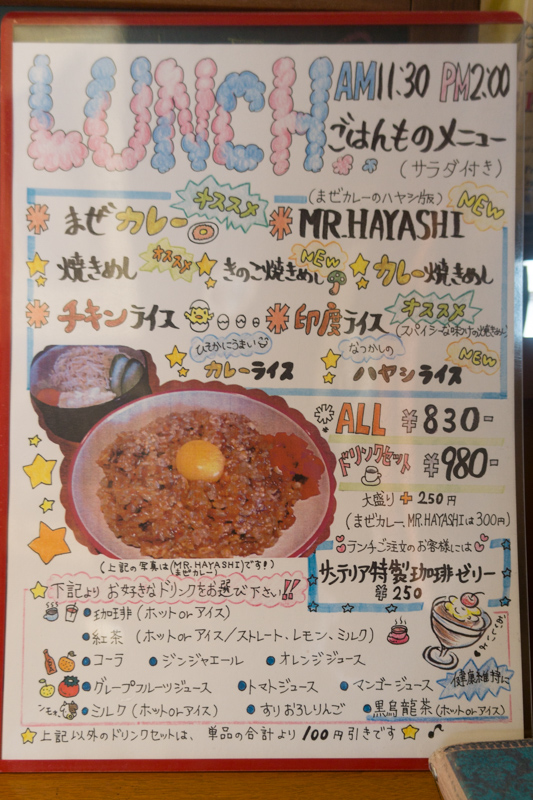 LUNCH AM11:30 PM2:00
ごはんものメニュー
(サラダ付き)
(まぜカレーのハヤシ版) NEW
まぜカレー オススメ MR.HAYASHI
焼きめし オススメ きのこ焼きめし NEW カレー焼きめし
チキンライス 印度ライス オススメ
(スパイシーな味つけの焼きめし)
ひそかにうまい なつかしの NEW
カレーライス ハヤシライス
ALL ¥830-
ドリンクセット ¥980-
大盛り+250円
(まぜカレー、MR.HAYASHIは300円)
(上記の写真は(MR.HAYASHI)です!)
まぜカレー
ランチご注文のお客様には
サンテリア特製珈琲ゼリー
¥250
おいしいよ
下記よりお好きなドリンクをお選び下さい!!
珈琲(ホットorアイス)
紅茶(ホットorアイス/ストレート、レモン、ミルク)
コーラ ジンジャエール オレンジジュース
グレープフルーツジュース トマトジュース マンゴージュース
健康維持に
ミルク(ホットorアイス) すりおろしりんご 黒烏龍茶(ホットorアイス)
上記以外のドリンクセットは、単品の合計より100円引きです